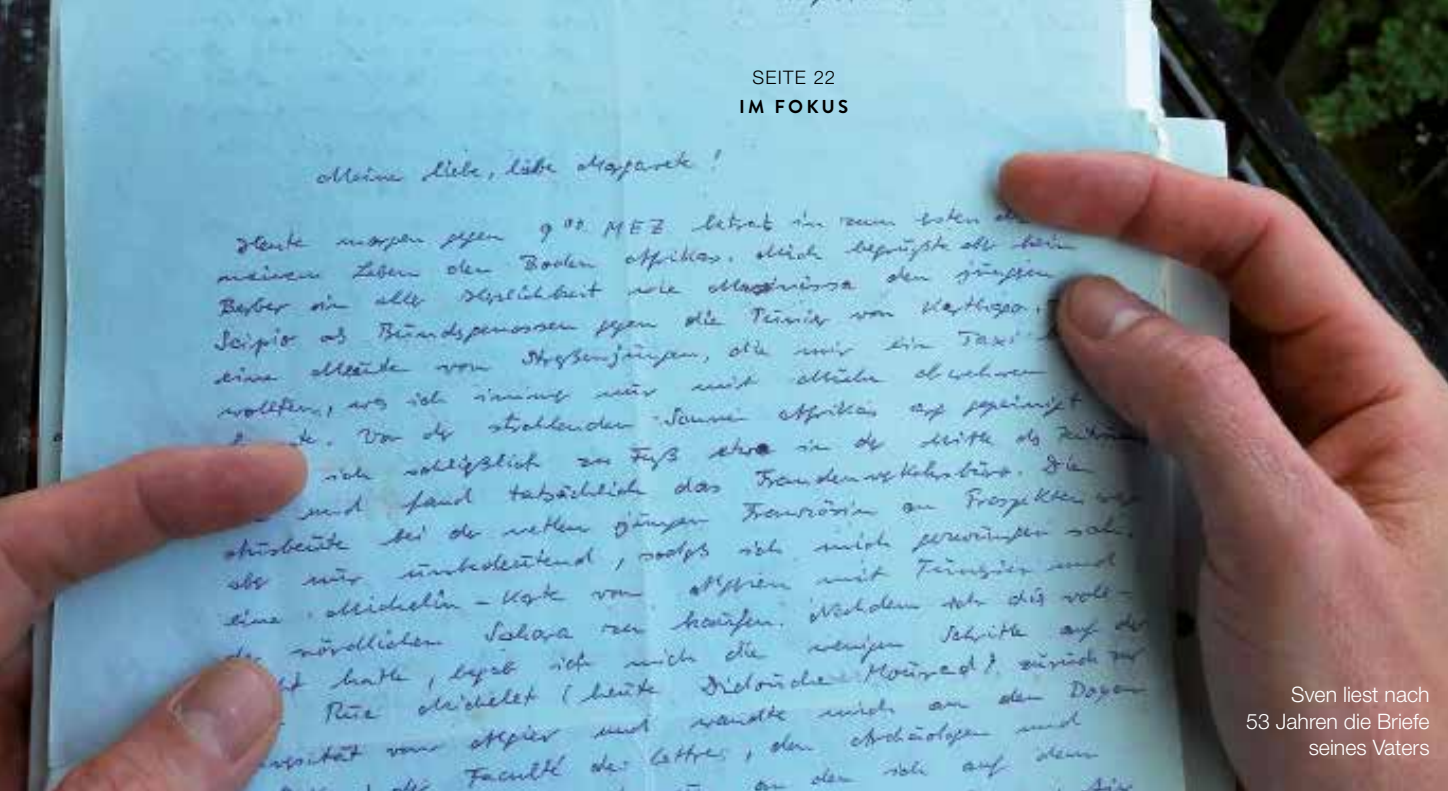 SEITE 22
IM FOKUS
Meine liebe, liebe Margarete!
Heute morgen gegen 9 00 MEZ betrat ich zum ersten
meinem Leben den Boden Afrikas. Mich begrüßte aber kein
Berber in aller Herzlichkeit wie Massinissa den jungen
Scipio als Bundesgenossen gegen die Punier von Karthago,
eine Meute von Straßenjungen, die mir ein Taxi
wollten, was ich immer nur mit Mühe abwehren
Von der strahlenden Sonne Afrikas arg gepeinigt
ich schließlich zu Fuß etwa in der Mitte des
und fand tatsächlich das Fremdenverkehrsbüro. Die
Ausbeute bei der netten jungen Französin an Prospekten war
aber nur unbedeutend, sodaß ich mich gezwungen sah,
eine Michelin-Karte von Algerien mit Tunesien und
der nördlichen Sahara zu kaufen. Nachdem ich dies voll-
hatte, begab ich mich die wenigen Schritte auf der
Rue Michelet (heute Didouche Mourad) zurück zur
von Algier und wandte mich an den Doyen
der Faculté des Lettres, den Archäologen und
an den ich auf dem
Sven liest nach
53 Jahren die Briefe
seines Vaters